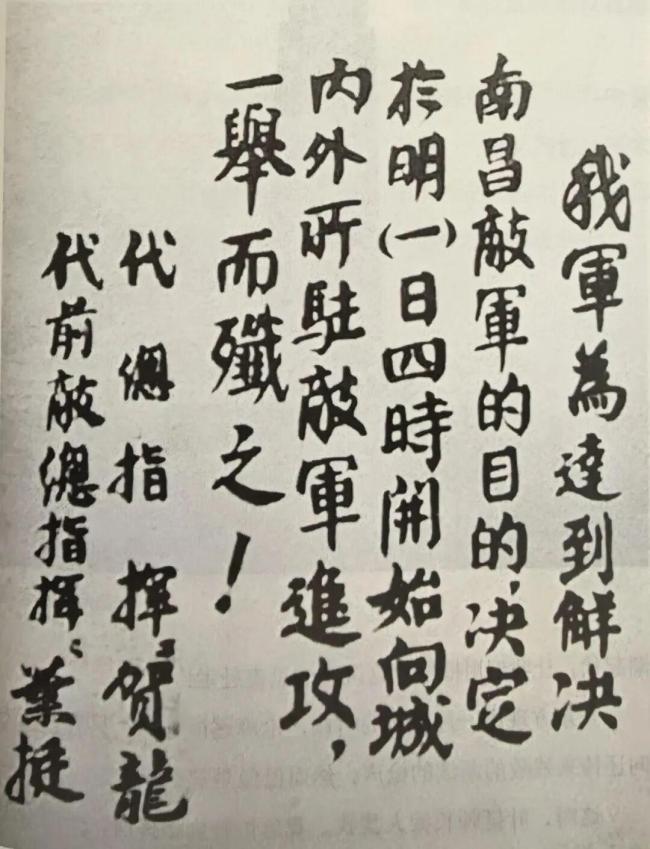 我軍為達到解决
南昌敵軍的目的,决定
於明(一)日四時開始向城
内外所駐敵軍進攻,
一舉而殲之!
代總指揮:賀龍
代前敵總指揮:葉挺